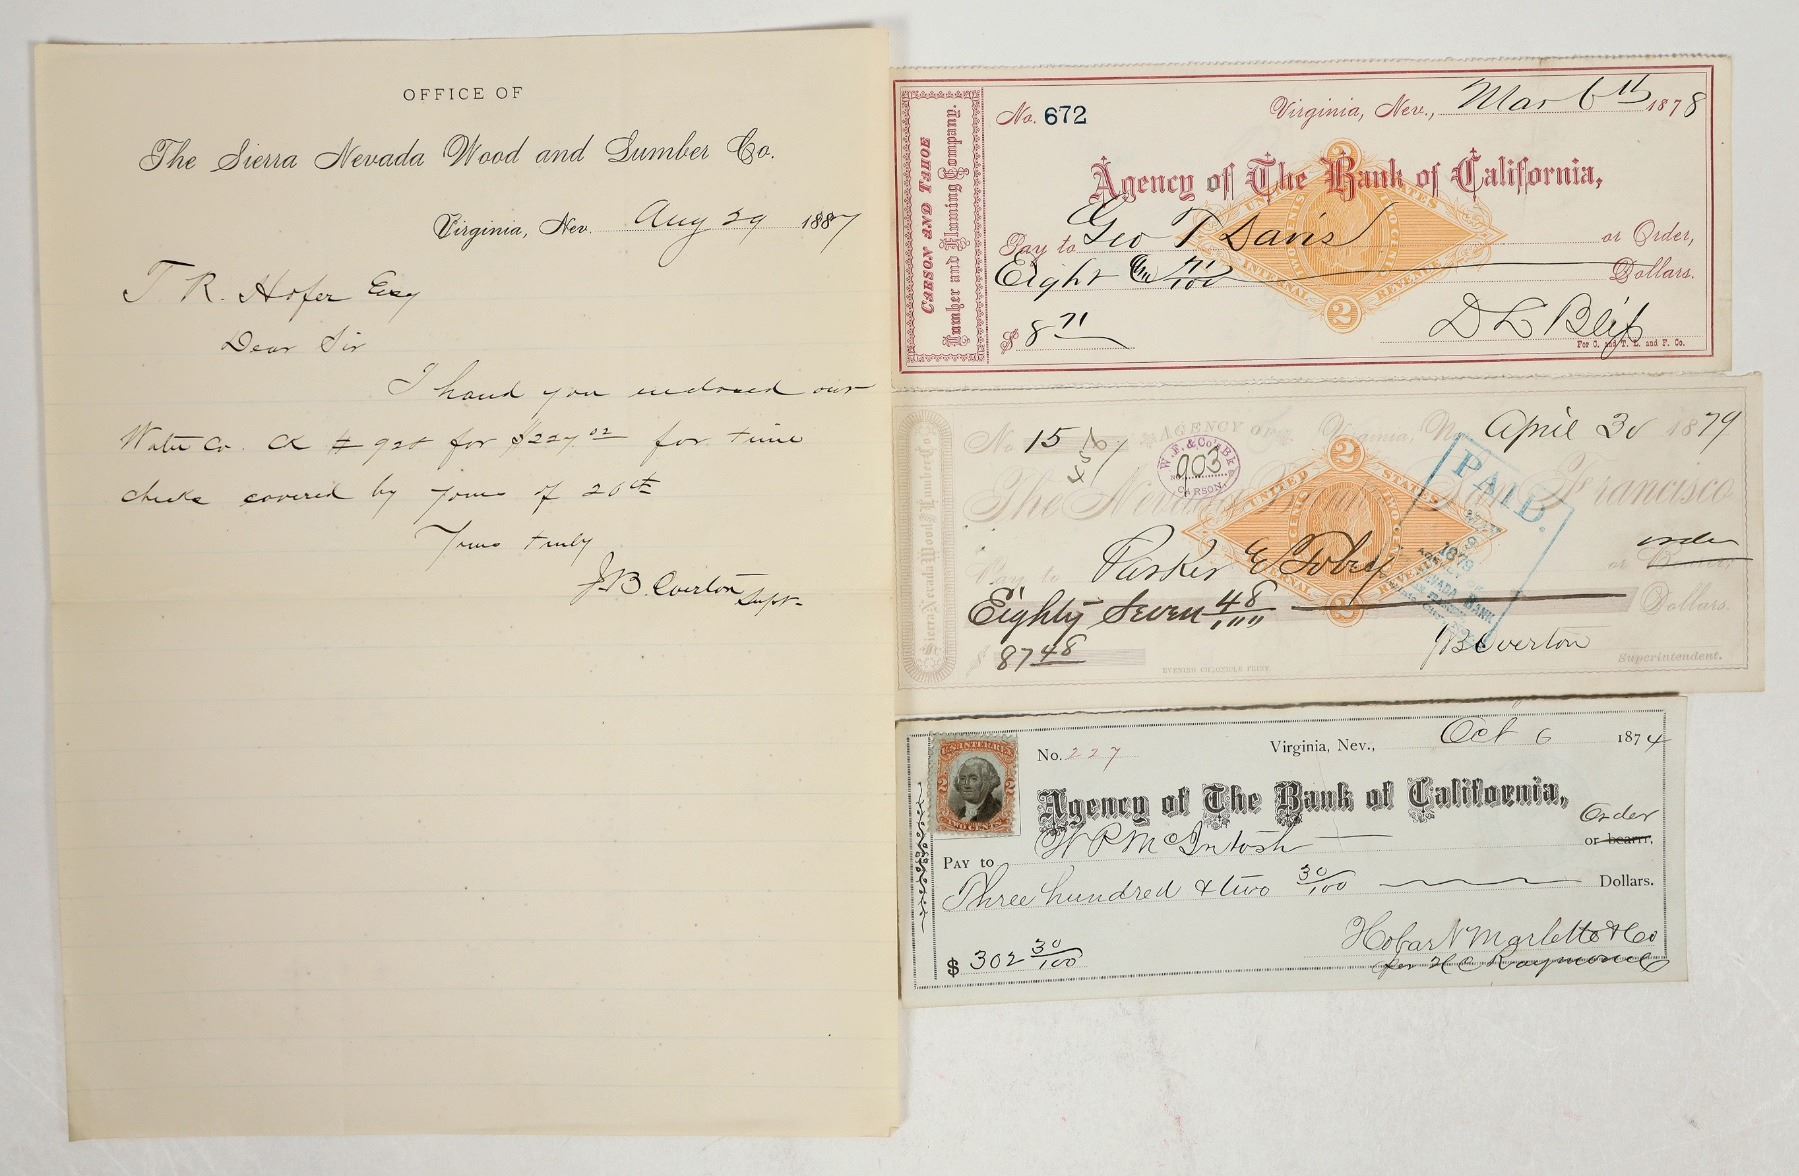 OFFICE OF
The Sierra Nevada Wood and Lumber Co.
Virginia, Nev. Aug 29 1887
T. R. Hofer Esq
Dear Sir
I hand you enclosed our
Water Co. a # 928 for $227.02 for time
checks covered by yours of 26th
Yours truly
J.B. Overton Supt.
CARSON AND TAHOE
Lumber and Fluming Company.
No. 672
Virginia, Nev., Mar 6th 1878
Agency of The Bank of California,
Pay to Geo T Davis or Order,
Eight 71/100 Dollars.
$ 8 71
D L Bliss
For C. and T. L. and F. Co.
UNITED STATES
INTERNAL REVENUE
2
2
Sierra Nevada Wood & Lumber Co.
No 15
AGENCY OF
Virginia, N. April 30 1879
W. F. & Co's Bk
No. 903
CARSON.
The Nevada Bank of San Francisco
PAID.
1879
NEVADA BANK
Pay to Parker & Tobey or order
Eighty Seven 48/100 Dollars.
$ 87 48
JB Overton
Superintendent.
EVENING CHRONICLE PRINT.
UNITED STATES
INTERNAL REVENUE
2
2
U.S. INTER. REV.
TWO CENTS
No. 227
Virginia, Nev., Oct 6 1874
Agency of The Bank of California,
Order
PAY TO W P McIntosh or bearer,
Three hundred & two 30/100 Dollars.
$ 302 30/100
Hobart Marlette & Co
per H C Raymond